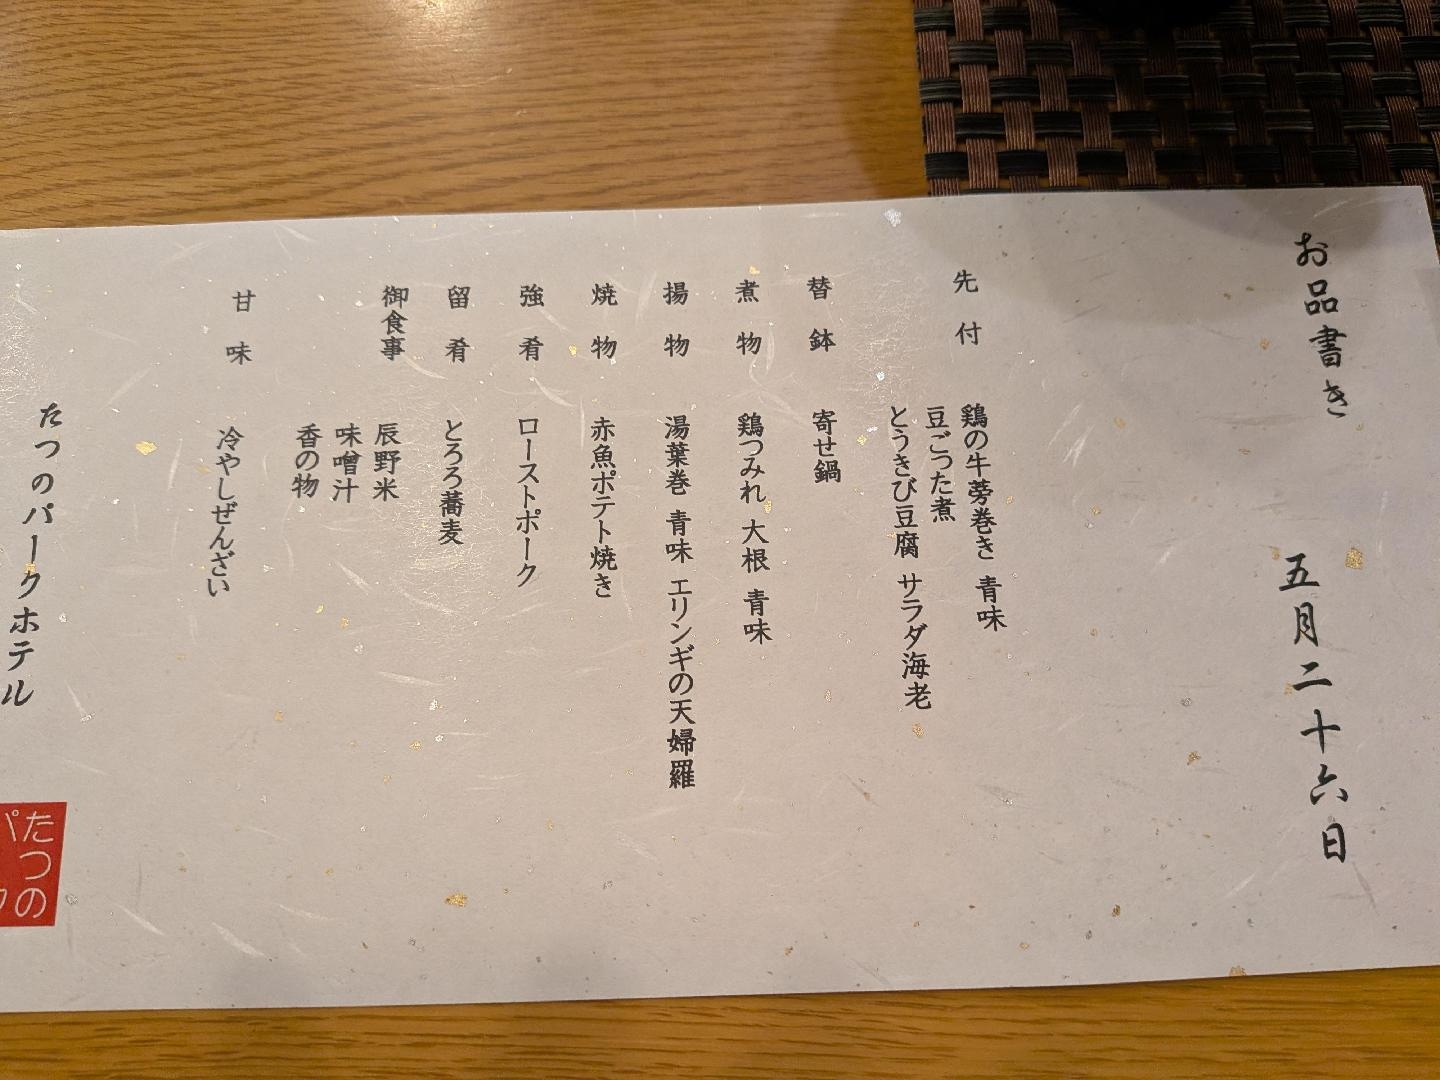 お品書き 五月二十六日
先付 鶏の牛蒡巻き 青味
豆ごった煮
とうきび豆腐 サラダ海老
替鉢 寄せ鍋
煮物 鶏つみれ 大根 青味
揚物 湯葉巻 青味 エリンギの天婦羅
焼物 赤魚ポテト焼き
強肴 ローストポーク
留肴 とろろ蕎麦
御食事 辰野米
味噌汁
香の物
甘味 冷やしぜんざい
たつのパークホテル
たつの
パ